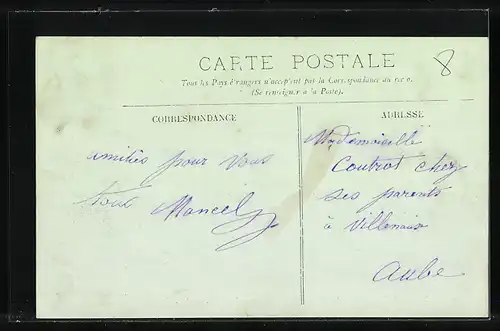 CARTE POSTALE
8
Tous les Pays étrangers n'acceptent pas la Correspondance au recto.
(Se renseigner à la Poste).
CORRESPONDANCE
amitiés pour vous
tous Marcel
ADRESSE
Mademoiselle
Coutrot chez
ses parents
à Villenauxe
Aube